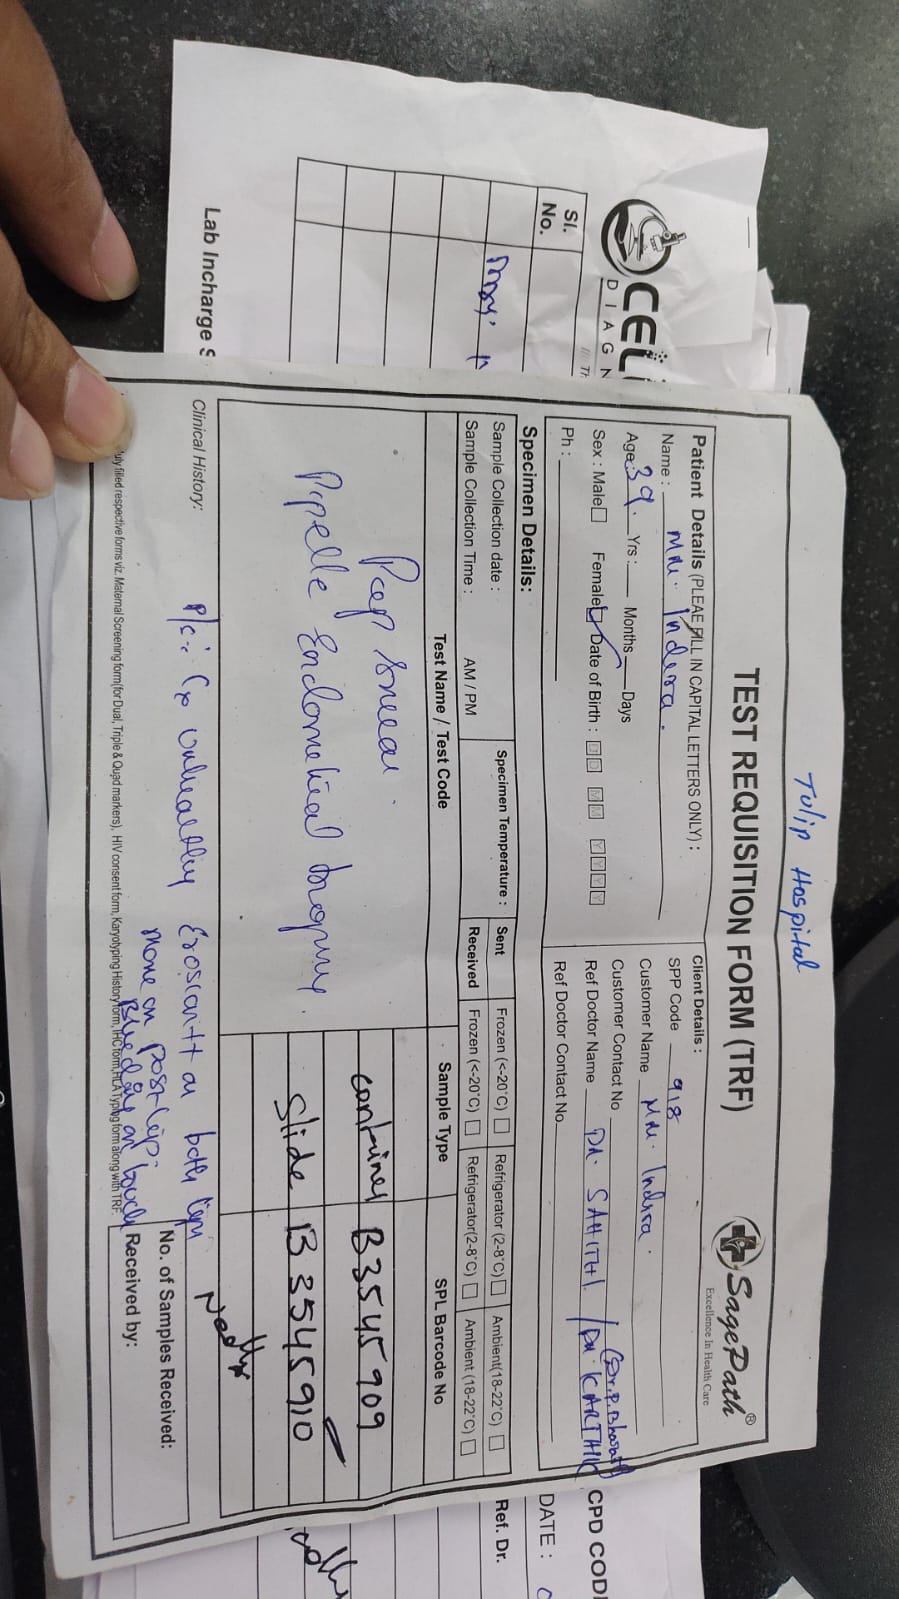 Tulip Hospital
TEST REQUISITION FORM (TRF)
SagePath®
Excellence In Health Care
Patient Details (PLEAE FILL IN CAPITAL LETTERS ONLY) :
Name : Mrs. Indira.
Age: 39 Yrs : Months Days
Sex : Male Female Date of Birth : DD MM YYYY
Ph :
Client Details :
SPP Code 918
Customer Name Mrs. Indira.
Customer Contact No
Ref Doctor Name DR. SAHITHI / DR. KARTHIK
(Dr.P.Bharath)
Ref Doctor Contact No
Specimen Details:
Sample Collection date : Specimen Temperature : Sent Frozen (<-20°C) Refrigerator (2-8°C) Ambient(18-22°C)
Sample Collection Time : AM / PM Received Frozen (<-20°C) Refrigerator(2-8°C) Ambient (18-22°C)
Test Name / Test Code Sample Type SPL Barcode No
Pap Smear. container B3545909
Pipelle Endometrial slide B3545910
Clinical History: P/c:- Cx unhealthy Erosion ++ on both lips
more on post lip.
Bleeding on touch
No. of Samples Received:
Received by:
uly filled respective forms viz. Maternal Screening form(for Dual, Triple & Quad markers), HIV consent form, Karyotyping History form, IHC form, HLA Typing form along with TRF.
CEL
DIAGN
Sl.
No.
Lab Incharge S
CPD CODE
DATE :
Ref. Dr.